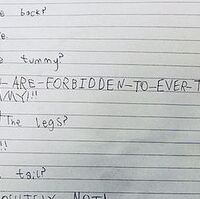 e back?
e.
e tummy?
ARE-FORBIDDEN-TO-EVER-T
MMY!!!
The legs?
!!
tail?
NOT!